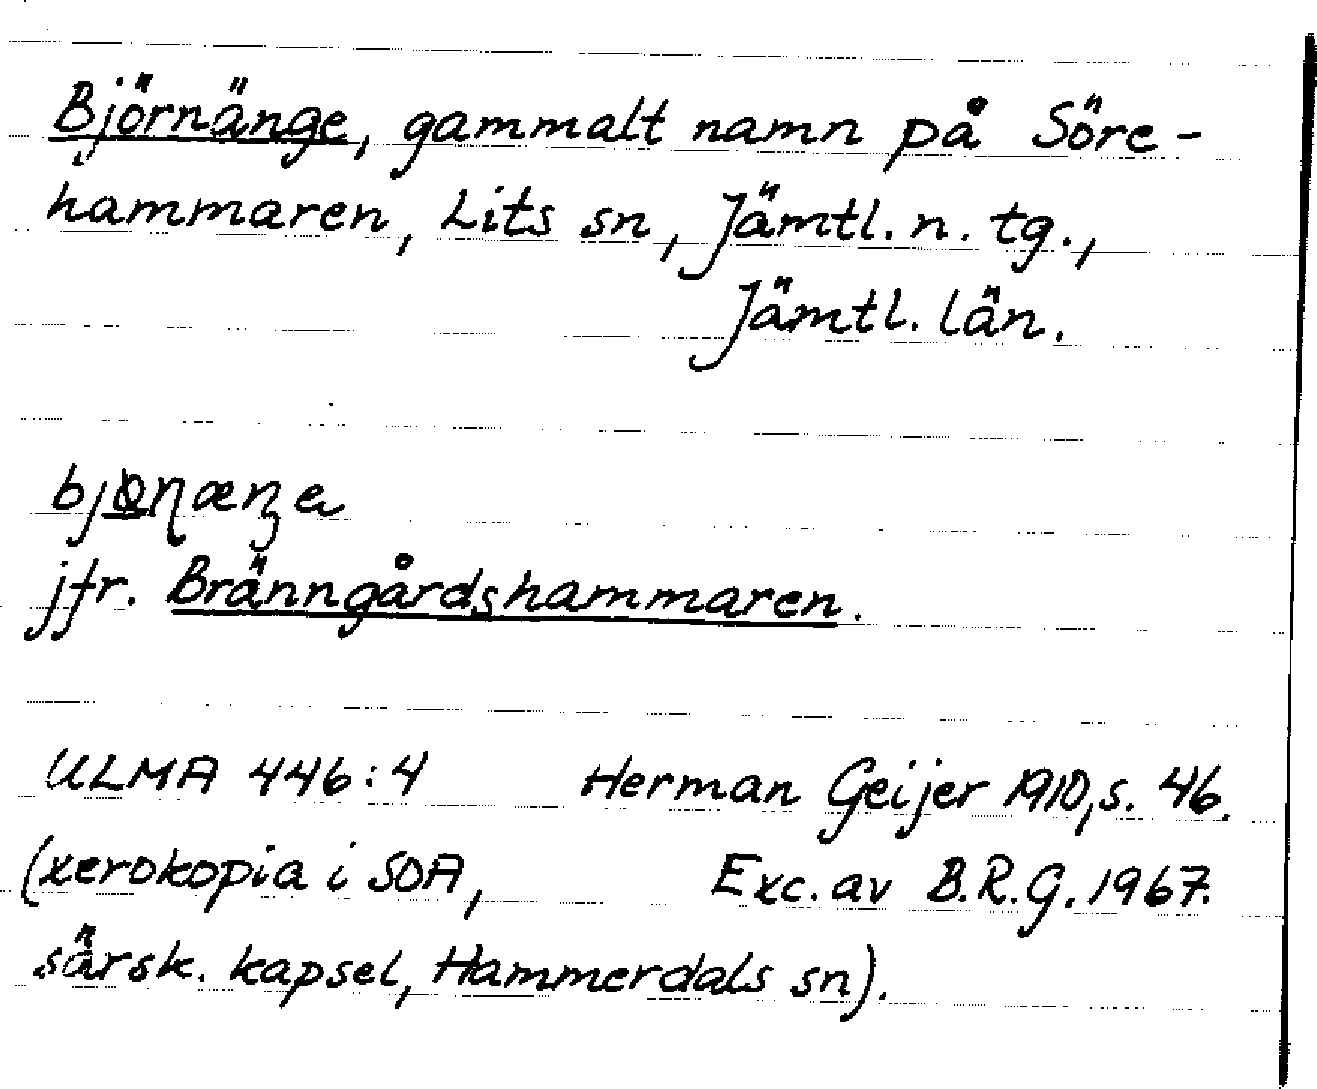 Björnänge, gammalt namn på Söre-
hammaren, Lits sn, Jämtl. n. tg.,
Jämtl. län.
jfr. Bränngårdshammaren.
ULMA 446:4 Herman Geijer 1910, s. 46.
(xerokopia i SOA, Exc. av B.R.G. 1967.
särsk. kapsel, Hammerdals sn).